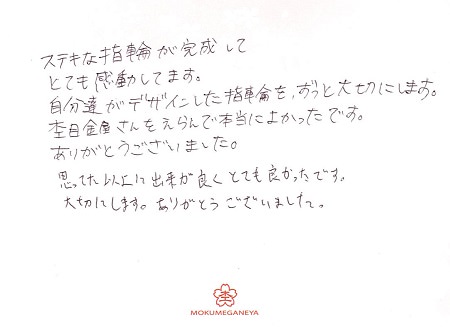 ステキな指輪が完成して
とても感動してます。
自分達がデザインした指輪を、ずっと大切にします。
杢目金屋さんをえらんで本当によかったです。
ありがとうございました。
思ってた以上に出来が良くとても良かったです。
大切にします。ありがとうございました。
杢
MOKUMEGANEYA